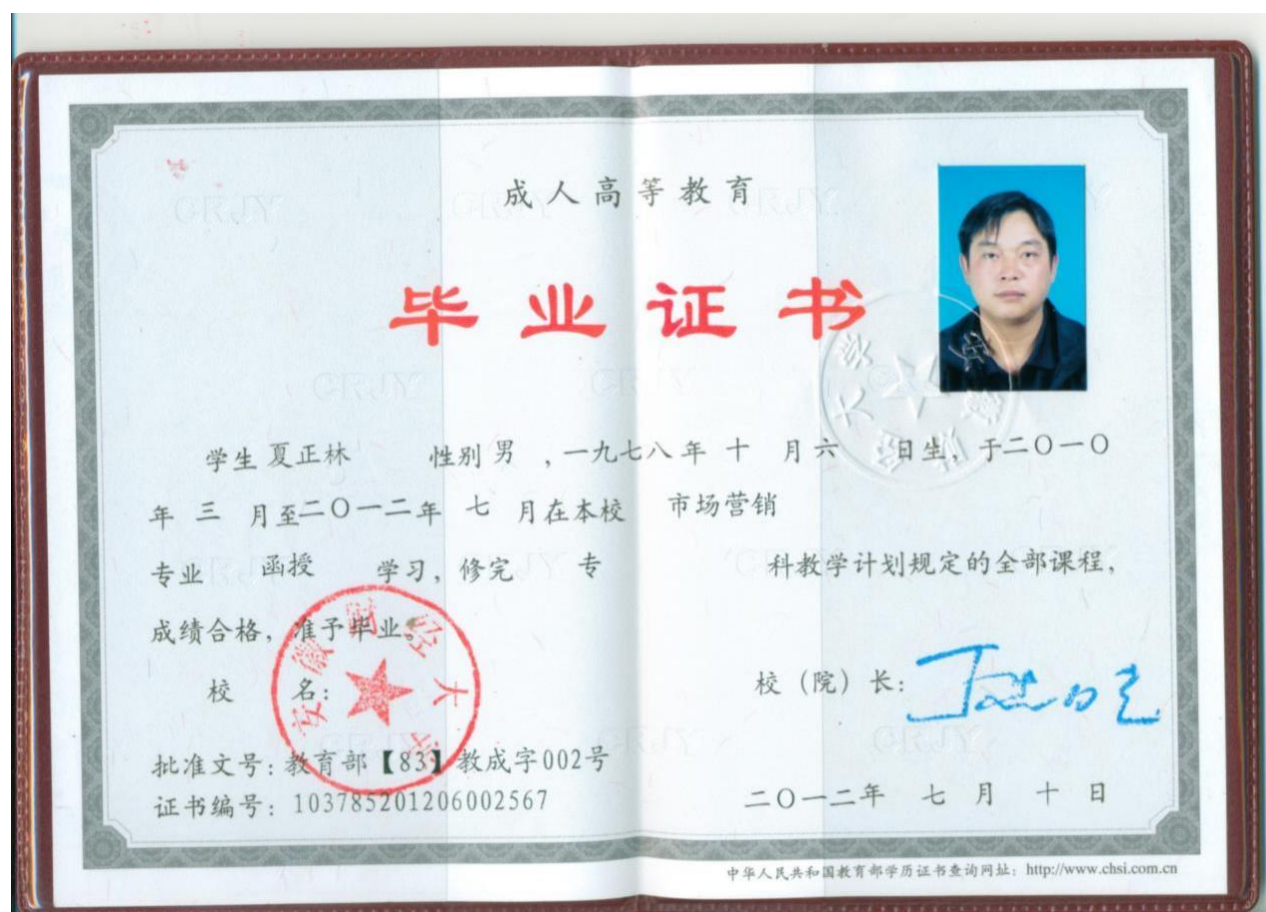 成人高等教育
毕业证书
学生 夏正林 性别 男 ,一九七八年 十 月 六 日生, 于二〇一〇
年 三 月至二〇一二年 七 月在本校 市场营销
专业 函授 学习, 修完 专 科教学计划规定的全部课程,
成绩合格, 准予毕业。
校 名:
安徽财经大学
校（院）长:
批准文号: 教育部【83】教成字002号
证书编号: 103785201206002567
二〇一二年 七 月 十 日
中华人民共和国教育部学历证书查询网址: http://www.chsi.com.cn
CRJY